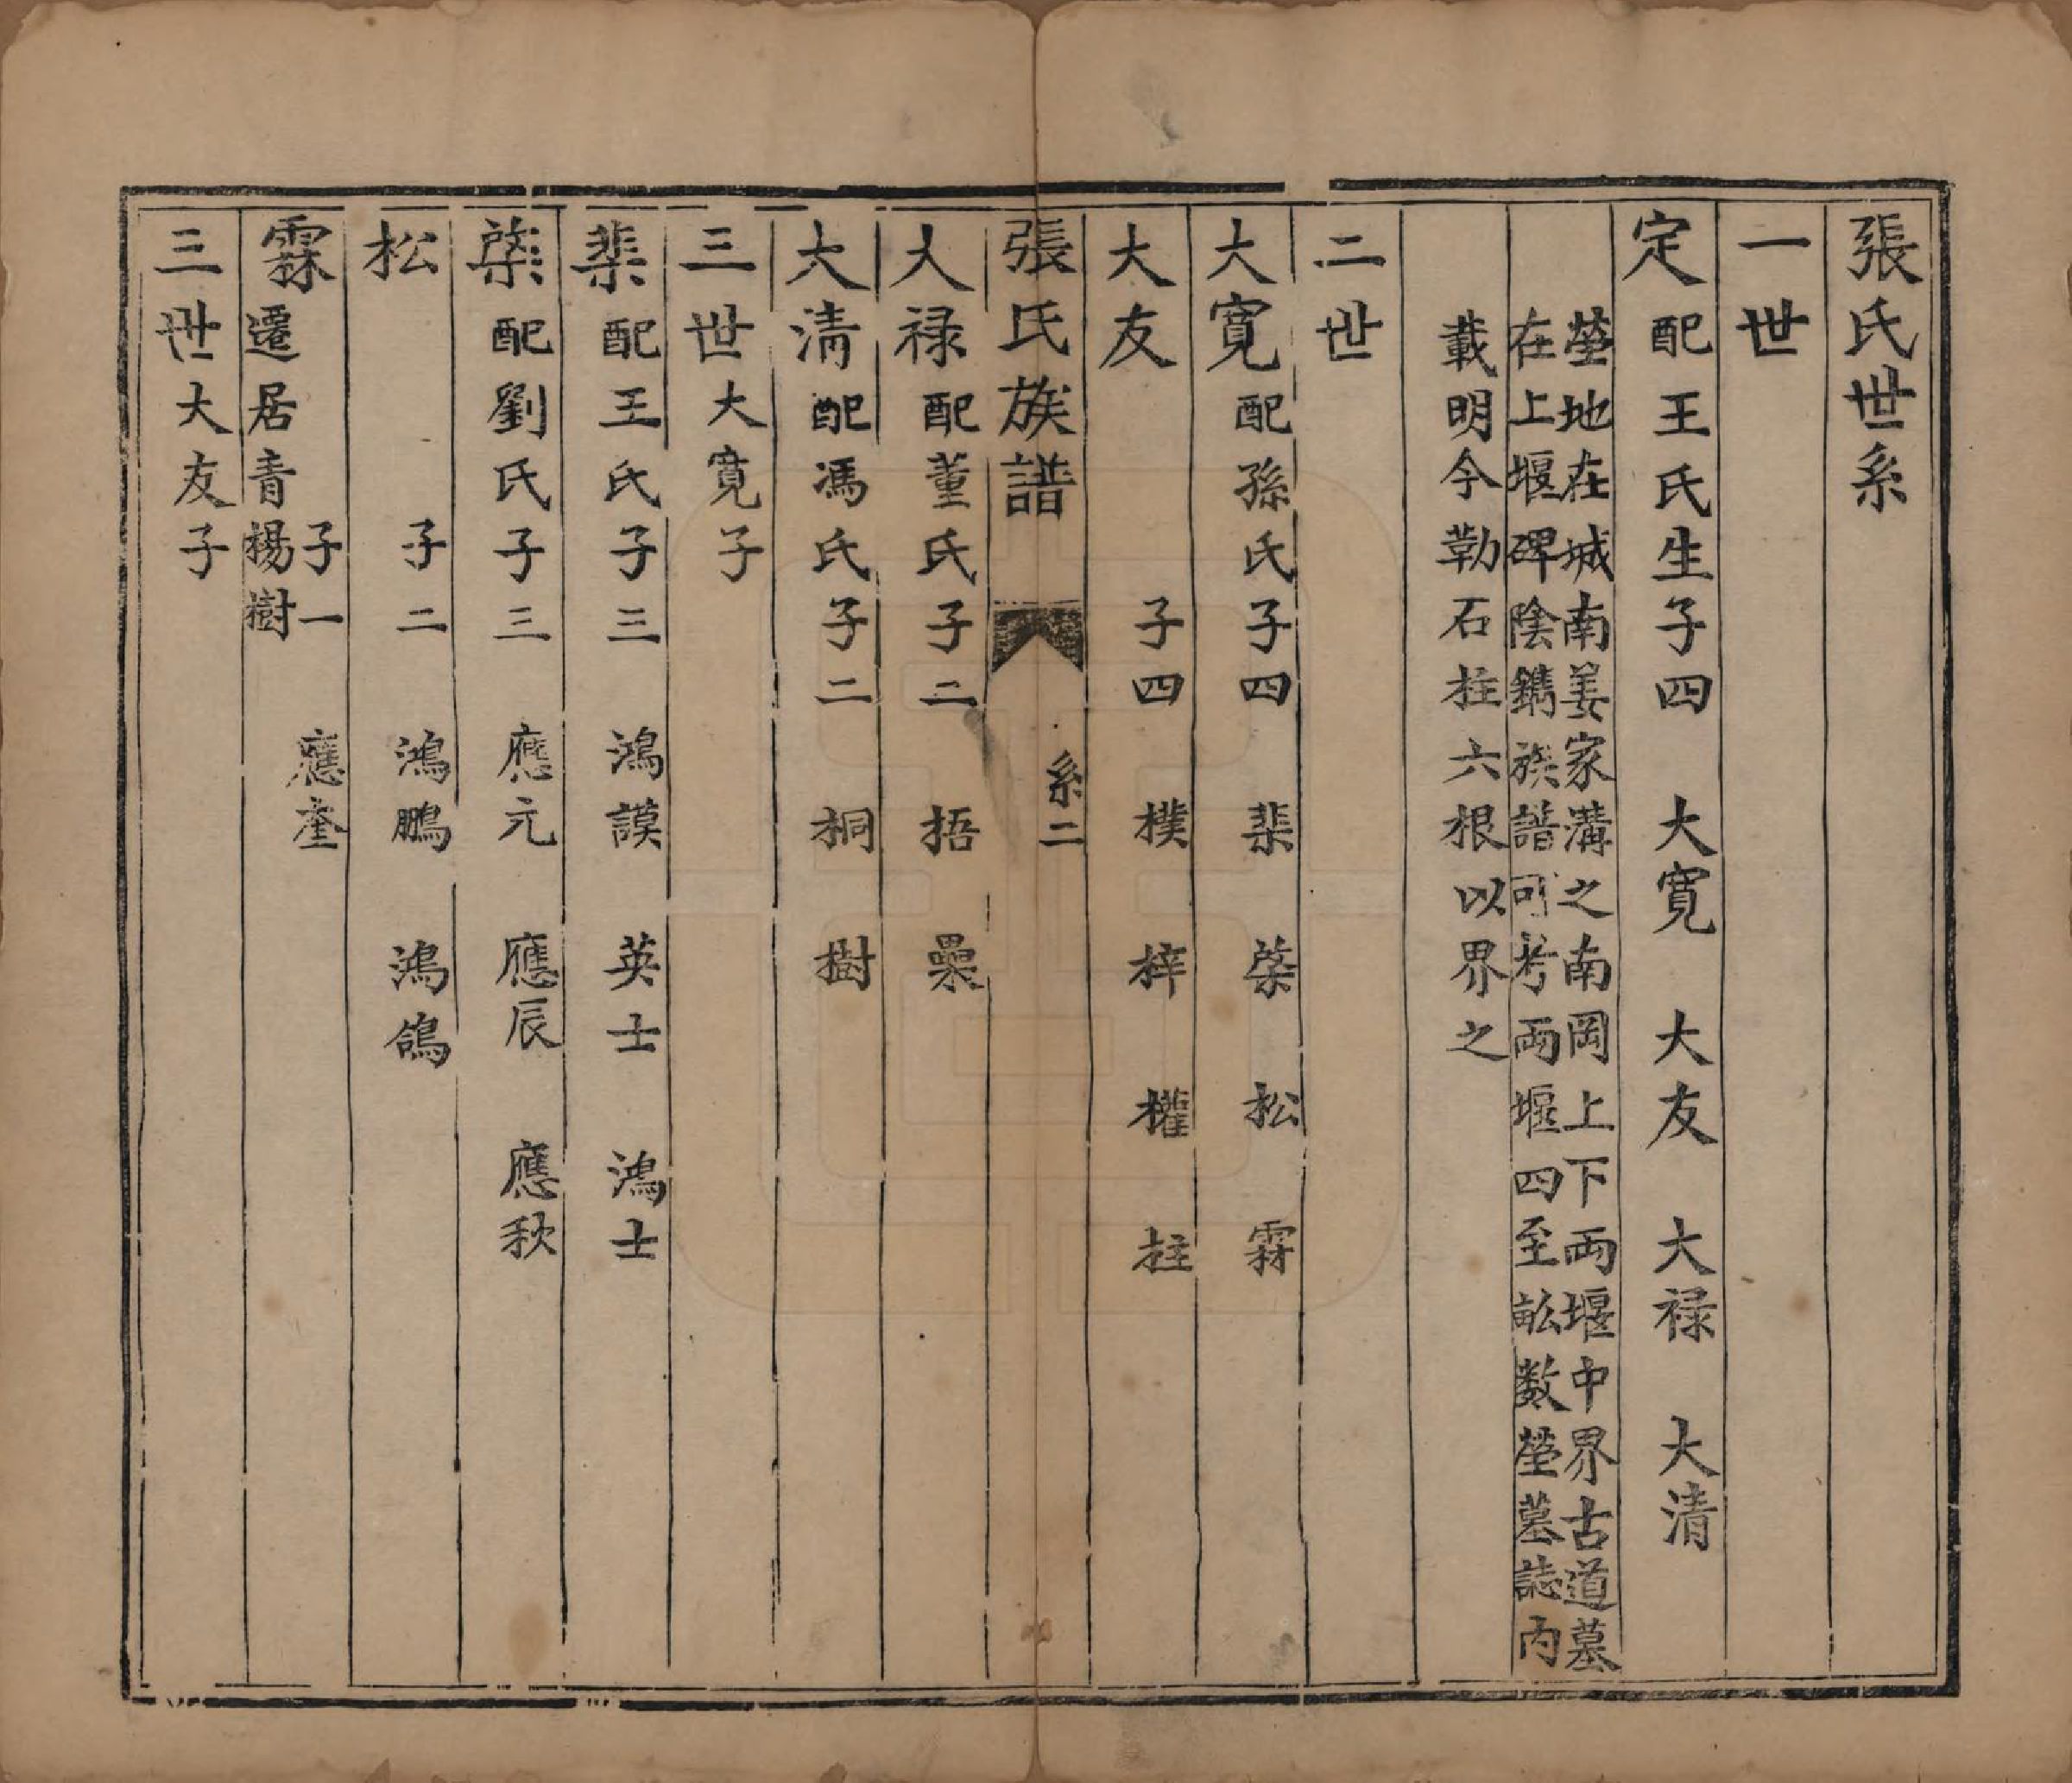 張氏世系
一世
定配王氏生子四 大寬 大友 大禄 大清
塋地在城南姜家溝之南岡上下両堰中界古道墓
在上堰碑陰鐫族譜可考両堰四至畝数塋墓誌内
載明今勒石柱六根以界之
二世
大寬配孫氏子四 棐 棨 松 霖
大友 子四 樸 梓 權 柱
張氏族譜 系二
大禄配董氏子二 梧 槼
大清配馮氏子二 桐 樹
三世大寬子
棐配王氏子三 鴻謨 英士 鴻士
棨配劉氏子三 應元 應辰 應秋
松 子二 鴻鵬 鴻鴿
霖遷居青楊樹 子一 應奎
三世大友子